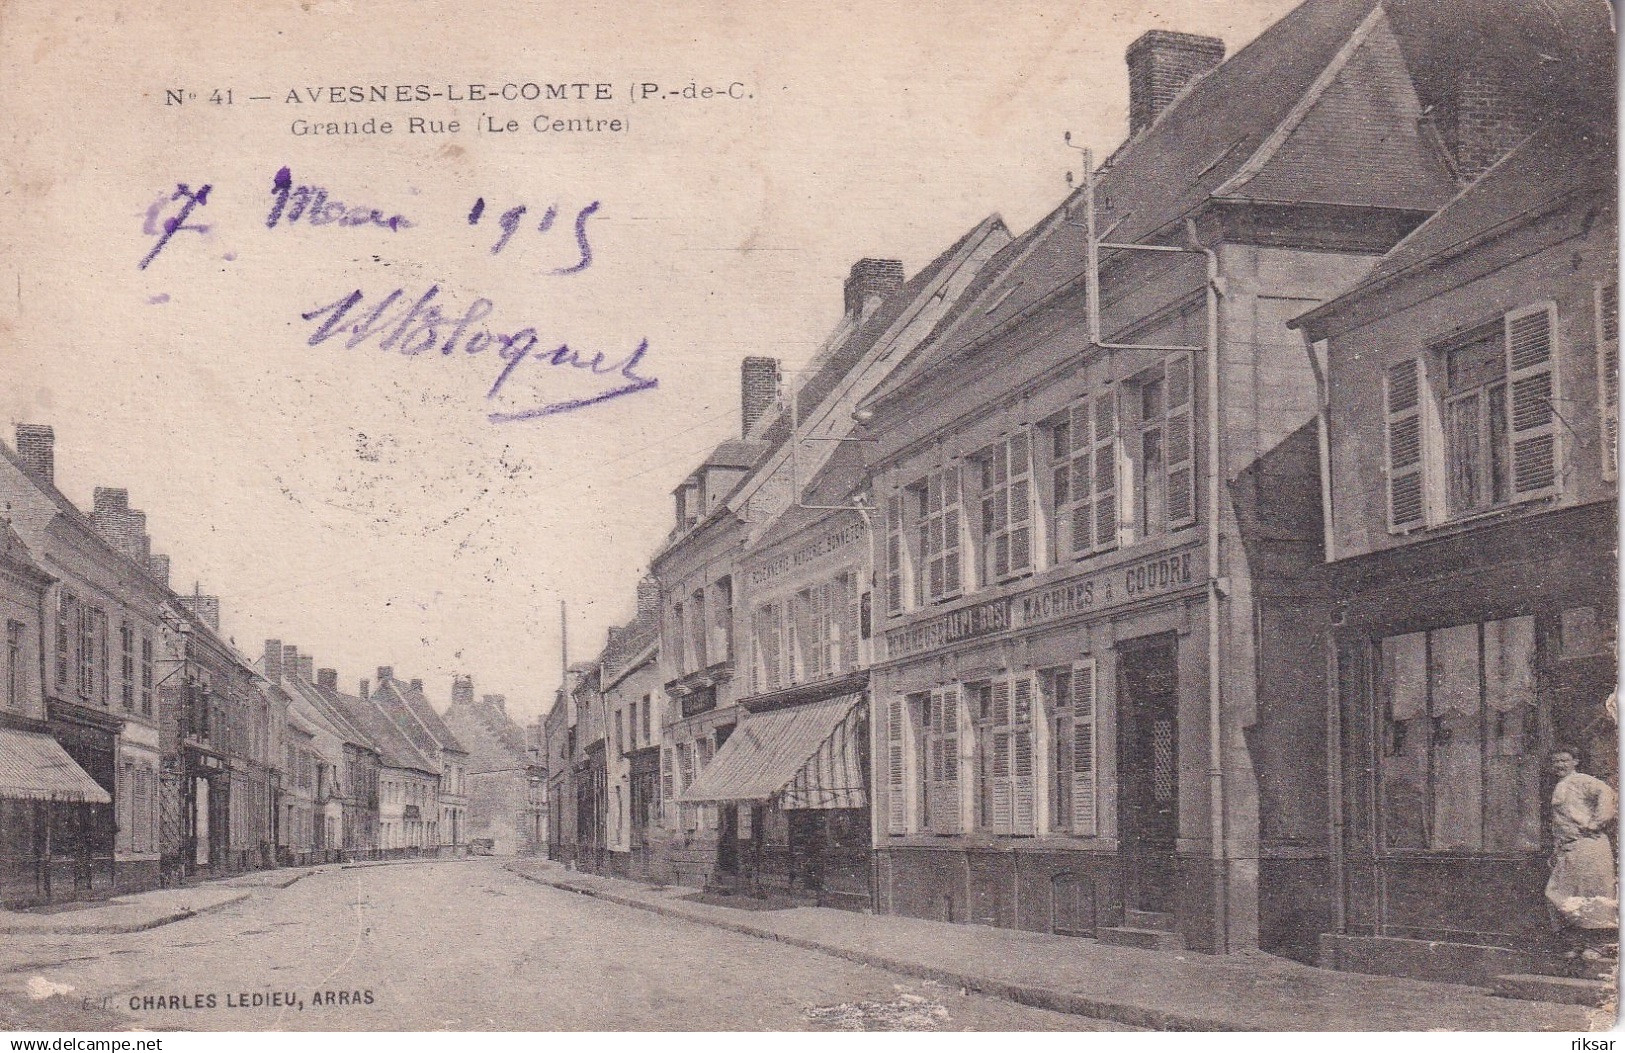 No 41 — AVESNES-LE-COMTE (P.-de-C.
Grande Rue (Le Centre)
7 Mai 1915
ROUENNERIE MERCERIE BONNETERIE
MACHINES à COUDRE
CHARLES LEDIEU, ARRAS
www.delcampe.net
riksar